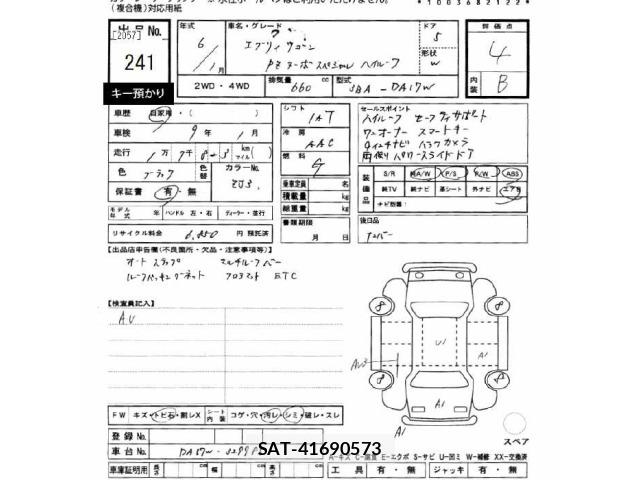 (複合機)対応用紙
*1003682122*
出品No.
[2057]
241
キー預かり
年式
6
1月
車名・グレード
エブリィワゴン
PZターボスペシャル ハイルーフ
ドア
5
形状
W
評価点
4
内装
B
2WD・4WD
排気量
660 cc
型式
DA17W
車歴
自家用・( )
車検 9年 1月
走行 1万 7千
km
マイル
色
色替
カラーNo.
ZJ3
保証書 有・無
モデル年式 年
ハンドル 左・右
ディーラー・並行
リサイクル料金
円 預託済
シフト
IAT
冷房
AAC
燃料
G
乗車定員 名
積載量 kg
総重量 kg
書類期限
月 日
セールスポイント
ハイルーフ セーフティサポート
ワンオーナー スマートキー
両側パワースライドドア
装備品
S/R
AW
P/S
P/W
ABS
純TV
純ナビ
革シート
外ナビ
エアB
ナビ動作(
後日品
ナンバー
【出品店申告欄(不良箇所・欠品・注意事項等)】
オートステップ マルチルーフバー
フロアマット ETC
【検査員記入】
AU
FW
キズ・トビ石・割レX
シート内装
コゲ・穴・汚レ・シミ・破レ・スレ
登録No.
車台No.
車庫証明用
長さ cm
幅 cm
高さ cm
U1
A1
A1
A1
スペア
SAT-41690573
A-キズ
E-エクボ S-サビ U-凹ミ W-補修 XX-交換済
工具 有・無
ジャッキ 有・無